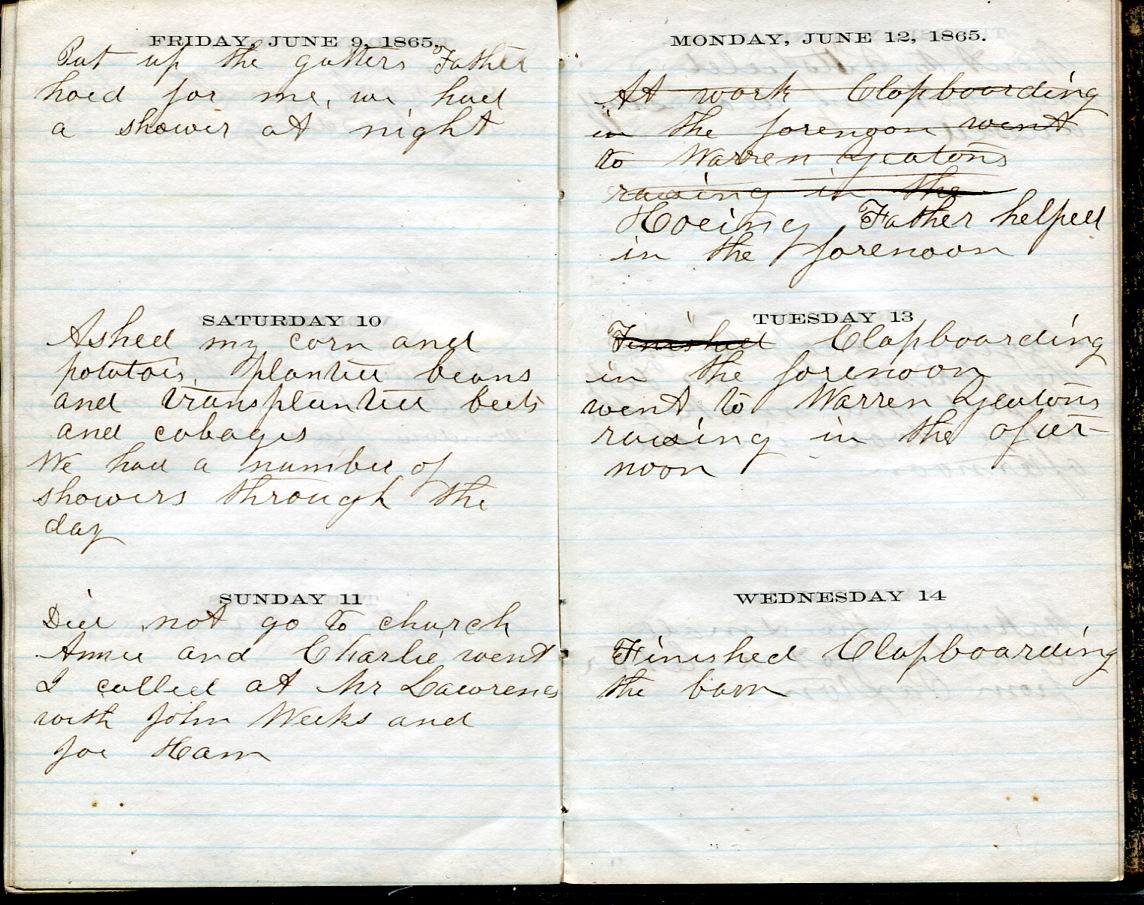 FRIDAY, JUNE 9, 1865.
Put up the gutters Father
hoed for me, we had
a shower at night
SATURDAY 10
Ashed my corn and
potatoes planted beans
and transplanted beets
and cabages
We had a number of
showers through the
day
SUNDAY 11
Did not go to church
Annie and Charlie went
I called at Mr Lawrences
with John Weeks and
Joe Ham
MONDAY, JUNE 12, 1865.
At work Clapboarding
in the forenoon went
to Warren Yeatons
raising in the
Hoeing Father helped
in the forenoon
TUESDAY 13
Finished Clapboarding
in the forenoon
went to Warren Yeatons
raising in the after-
noon
WEDNESDAY 14
Finished Clapboarding
the barn